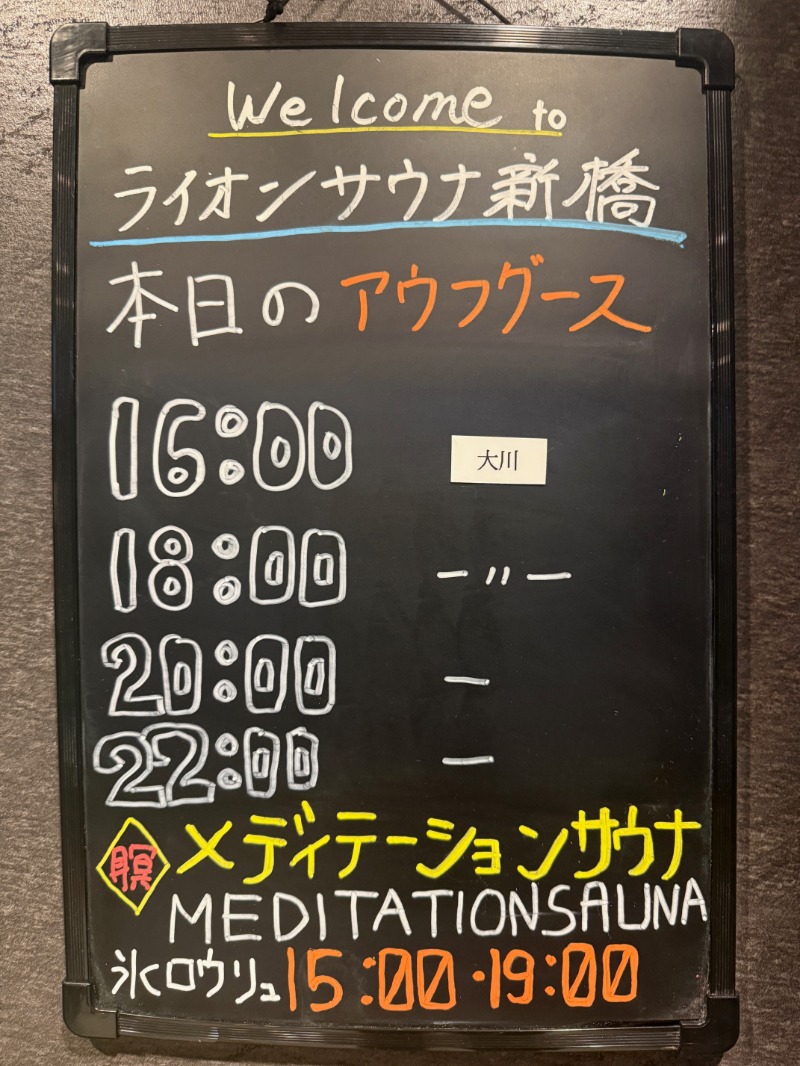 Welcome to
ライオンサウナ新橋
本日のアウフグース
16:00 大川
18:00 ー〃ー
20:00 ー
22:00 ー
瞑 メディテーションサウナ
MEDITATIONSAUNA
氷ロウリュ 15:00・19:00